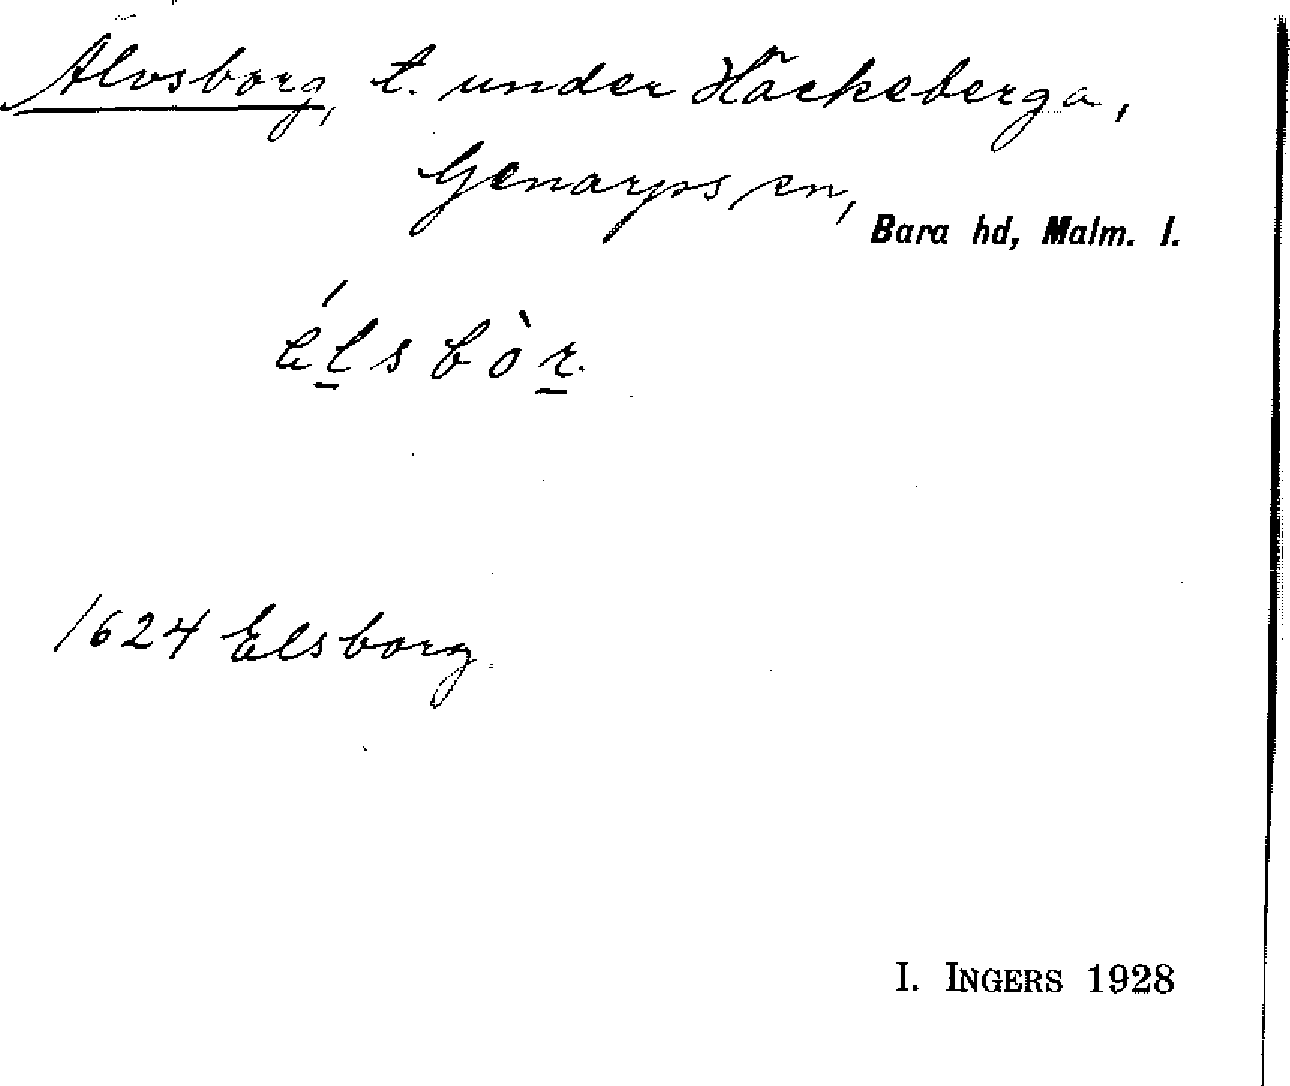 Älvsborg, t. under Häckeberga,
Genarps sn,
Bara hd, Malm. l.
élsbòr.
1624 Elsborg.
I. INGERS 1928